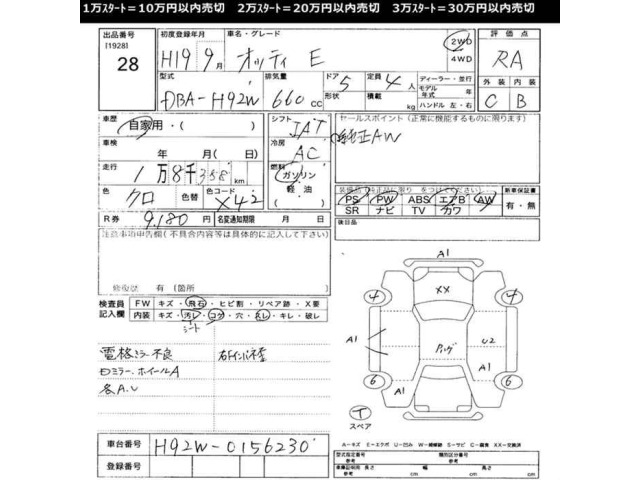 1万スタート=10万円以内売切 2万スタート=20万円以内売切 3万スタート=30万円以内売切
出品番号 初度登録年月 車名・グレード 評価点
[1928] 28 H19 9月 オッティ E 2WD 4WD RA
型式 排気量 ドア 定員 ディーラー・並行 外装 内装
DBA-H92W 660cc 5 4人 モデル年式 年 C B
形状 積載 kg ハンドル 左・右
車歴 自家用・( ) シフト IAT セールスポイント(正常に機能するものに限ります)
車検 年 月 日 冷房 AC 純正AW
走行 1万8千358km 燃料 ガソリン・軽油
色 クロ 色替 色コード X42 装備品(正品に限り をつけてください) 新車保証書
PS PW ABS エアB AW 有・無
SR ナビ TV カワ
R券 9,180円 名変通知期限 月 日 後日品
注意事項申告欄(不具合内容等は具体的に記入して下さい)
修復歴 有(箇所 )
検査員記入欄 FW キズ・飛石・ヒビ割・リペア跡・X要
内装 キズ・汚レ・コゲ・穴・スレ・キレ・破レ
シート
電格ミラー不良
Dミラー、ホイールA
各A.U
A1
XX
4 4
A1 U2
A1 A1
6 6
A1
T
スペア
A=キズ E=エクボ U=凹み W=補修跡 S=サビ C=腐食 XX=交換済
車台番号 H92W-0156230
登録番号
型式指定番号 参考 類別区分番号 参考
車庫証明用 参考 長さ cm 幅 cm 高さ cm